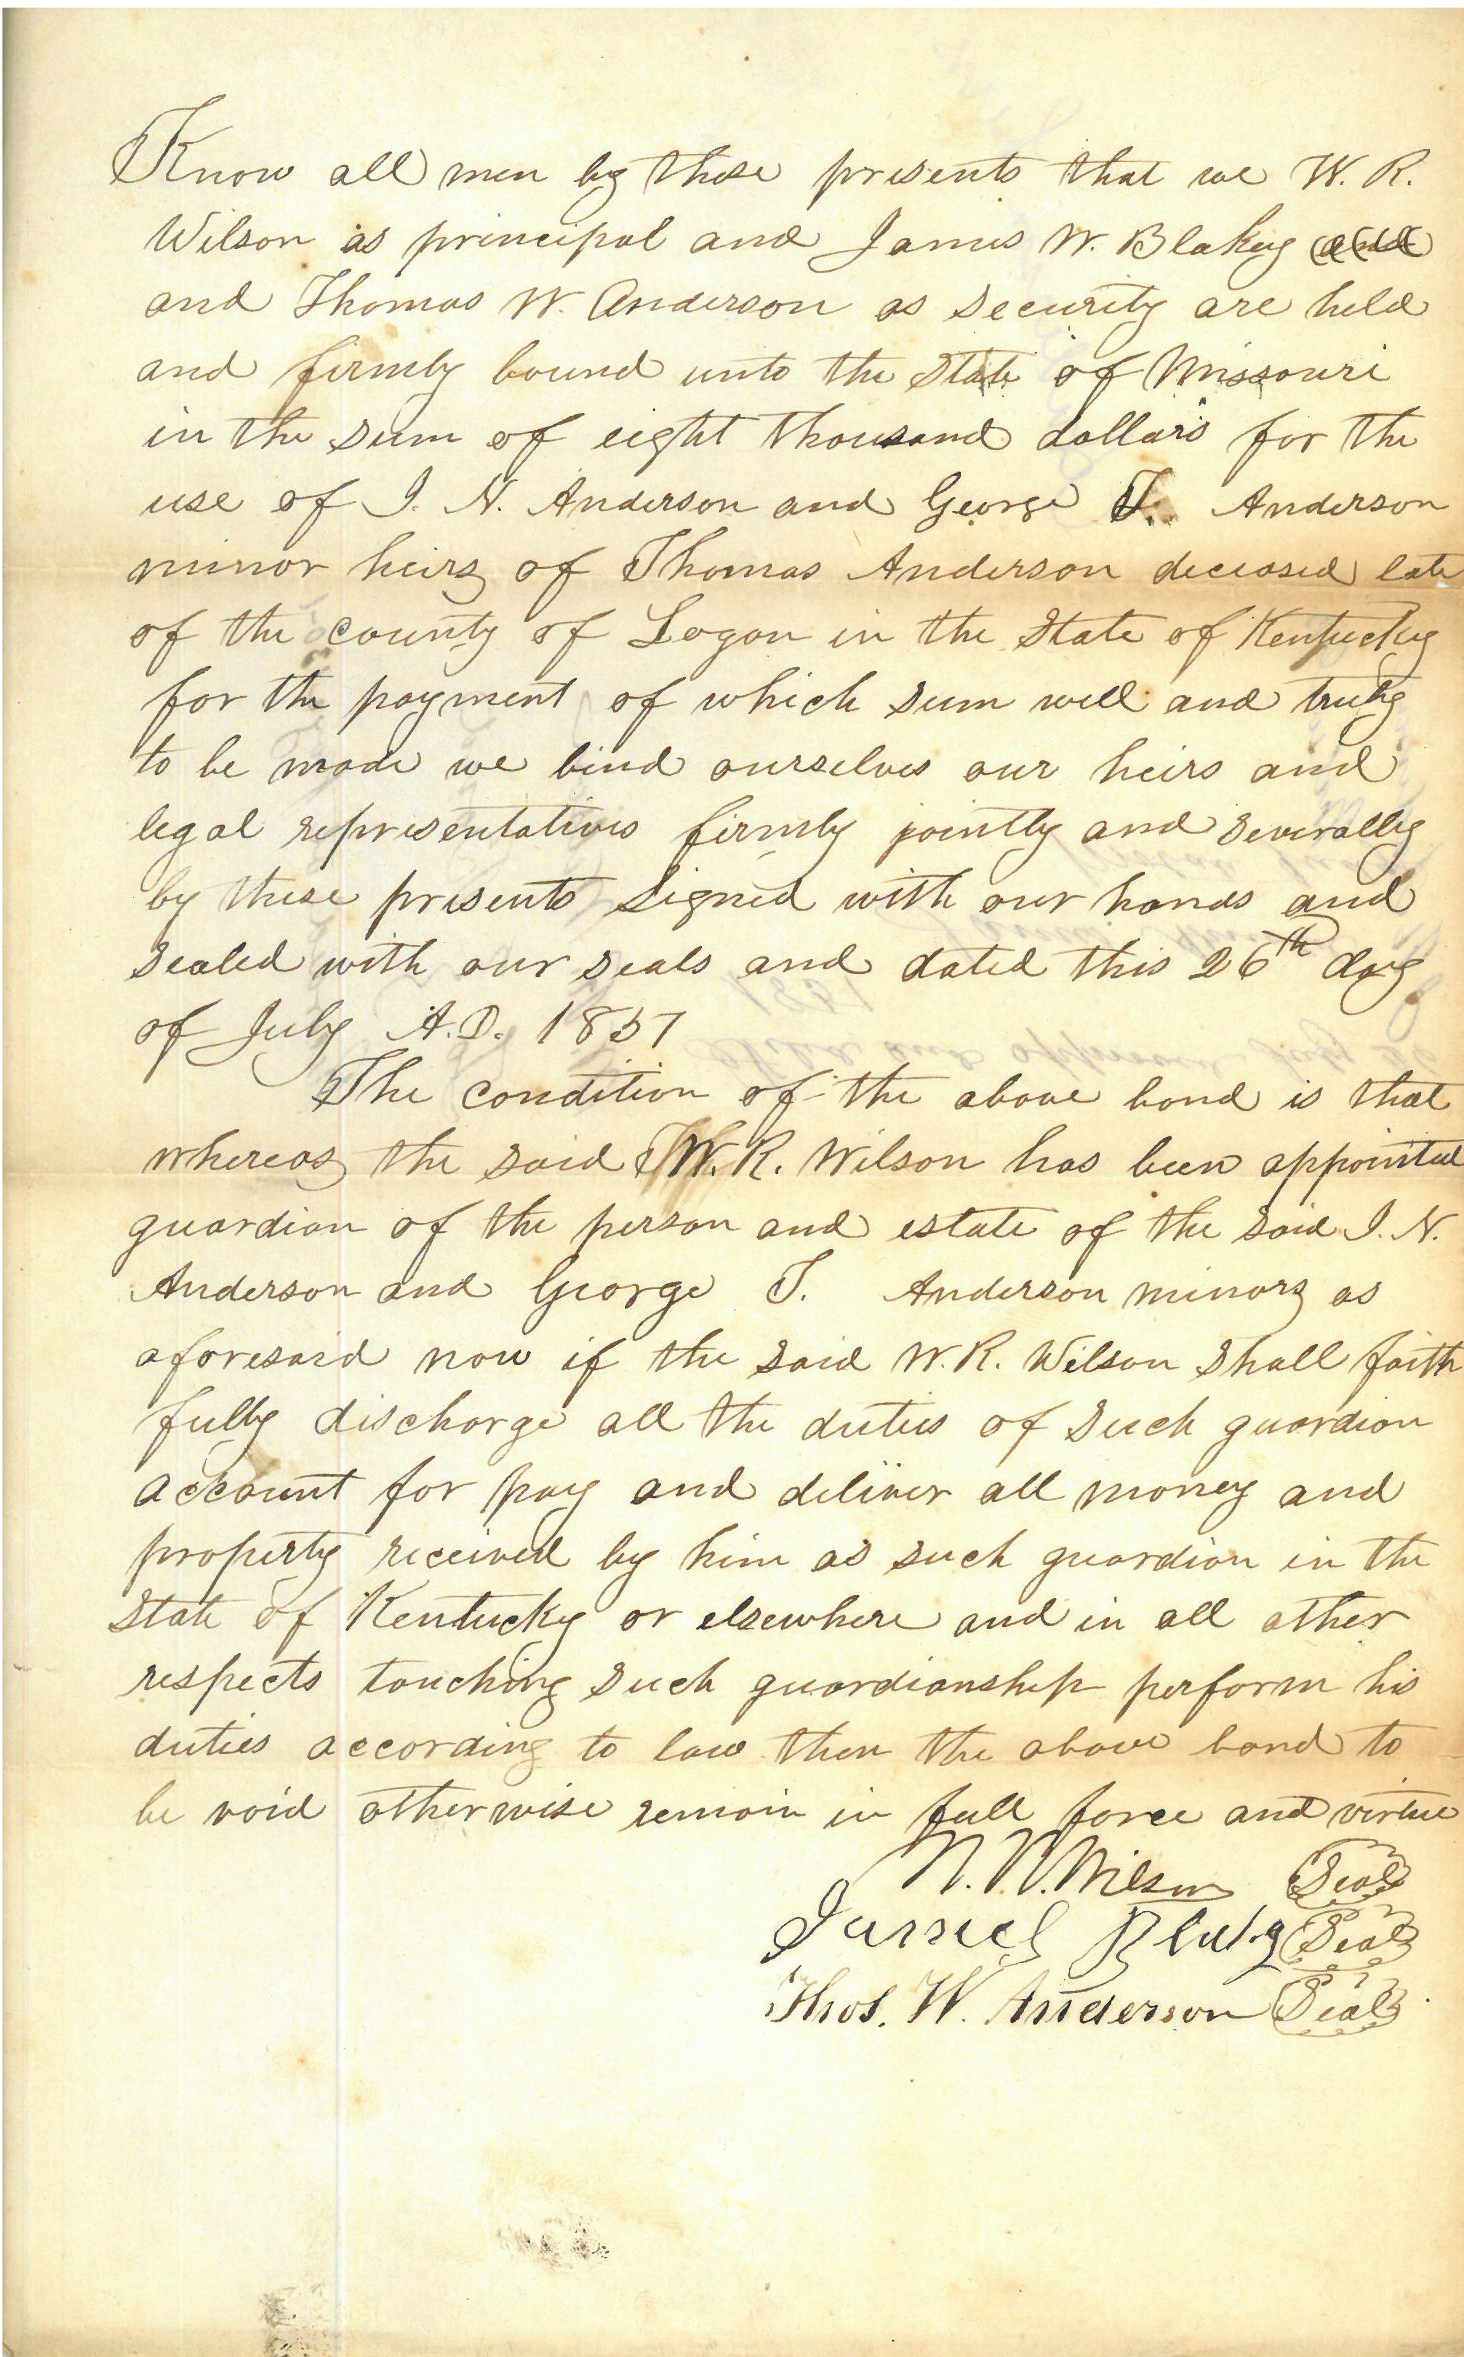 Know all men by these presents that we W. R.
Wilson as principal and James W. Blakey and
and Thomas W. Anderson as security are held
and firmly bound unto the State of Missouri
in the sum of eight thousand dollars for the
use of I. N. Anderson and George T. Anderson
minor heirs of Thomas Anderson deceased late
of the county of Logan in the State of Kentucky
for the payment of which sum well and truly
to be made we bind ourselves our heirs and
legal representatives firmly jointly and severally
by these presents signed with our hands and
sealed with our seals and dated this 26th day
of July A.D. 1857
The condition of the above bond is that
whereas the said W. R. Wilson has been appointed
guardian of the person and estate of the said I. N.
Anderson and George T. Anderson minors as
aforesaid now if the said W. R. Wilson shall faith
fully discharge all the duties of such guardian
account for pay and deliver all money and
property received by him as such guardian in the
State of Kentucky or elsewhere and in all other
respects touching such guardianship perform his
duties according to law then the above bond to
be void otherwise remain in full force and virtue
W. R. Wilson Seal
James Blakey Seal
Thos. W. Anderson Seal